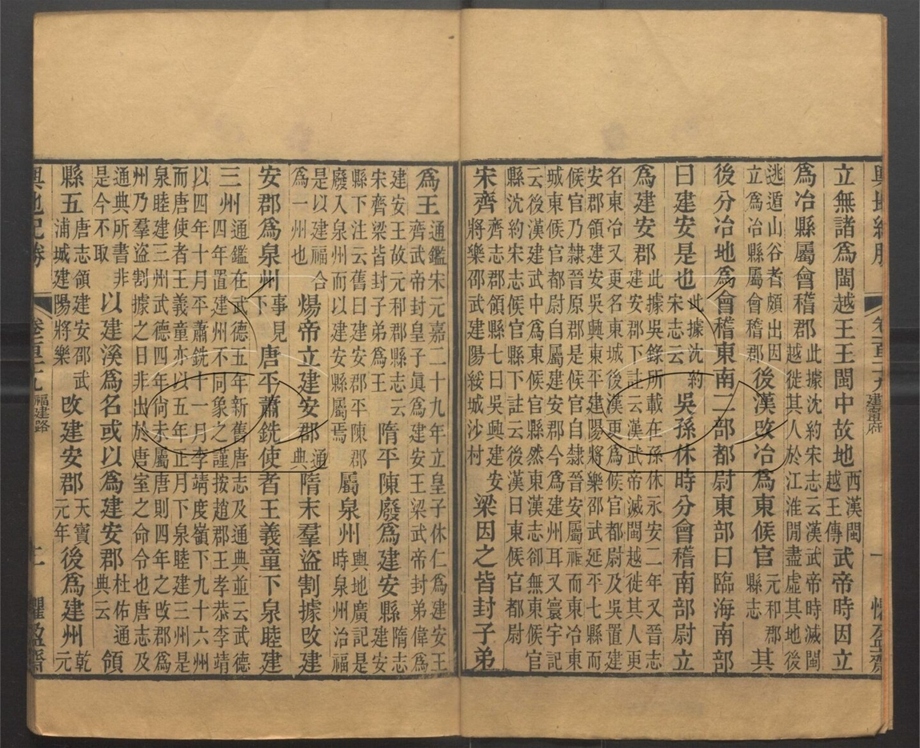 輿地紀勝 卷一百二十九 建寧府 一 懼盈齋
立無諸爲閩越王王閩中故地西漢閩越王傳武帝時因立
爲冶縣屬會稽郡此據沈約宋志云漢武帝時滅閩越徙其人於江淮閒盡虛其地後
逃遁山谷者頗出因立爲冶縣屬會稽郡後漢攺冶爲東候官元和郡縣志其
後分冶地爲會稽東南二部都尉東部曰臨海南部
曰建安是也此據沈約宋志云吳孫休時分會稽南部都尉立
爲建安郡此據吳錄所載在孫休永安二年又晉志建安郡下註云漢武帝滅閩越徙其人更
名東冶又更名東城後漢更爲候官都尉及吳置建安郡領建安吳興東平建陽將樂邵武延平七縣而
候官乃隸晉原郡是候官自隸晉安屬福而東冶東城候官都尉自屬建安郡今爲建州耳又寰宇記
云後漢建武中爲東候官縣然東漢志却無東候官縣沈約宋志候官縣下註云後漢曰東候官都尉
宋齊齊志建安郡領縣七曰吳興建安將樂邵武建陽綏城沙村梁因之皆封子弟
爲王通鑑宋元嘉二十九年立皇子休仁爲建安王齊武帝封皇子眞爲建安王梁武帝封弟偉爲
建安王故元和郡縣志云宋齊梁皆封子弟爲王隋平陳廢爲建安縣隋志建安
縣下注云舊曰建安郡平陳郡廢入泉州而以建安縣屬焉屬泉州輿地廣記是時泉州治福
是以建福合爲一州也煬帝立建安郡通典隋末羣盜割據攺建
安郡爲泉州事見下唐平蕭銑使者王義童下泉睦建
三州通鑑在武德五年新舊唐志及通典並云武德四年置建州不同象之謹按趙郡王孝恭李靖
以四年十月平蕭銑十一月李靖度嶺下九十六州而唐使者王義童亦以五年正月下泉睦建三州
泉睦建三州武德四年尚未屬唐則四年之攺郡爲州乃羣盜割據之日非出於唐室之命令也唐志及
通典所書非是今不取以建溪爲名或以爲建安郡杜佑通典云領
縣五唐志領建安邵武浦城建陽將樂攺建安郡天寶元年後爲建州乾元
輿地紀勝 卷一百二十九 福建路 二 懼盈齋